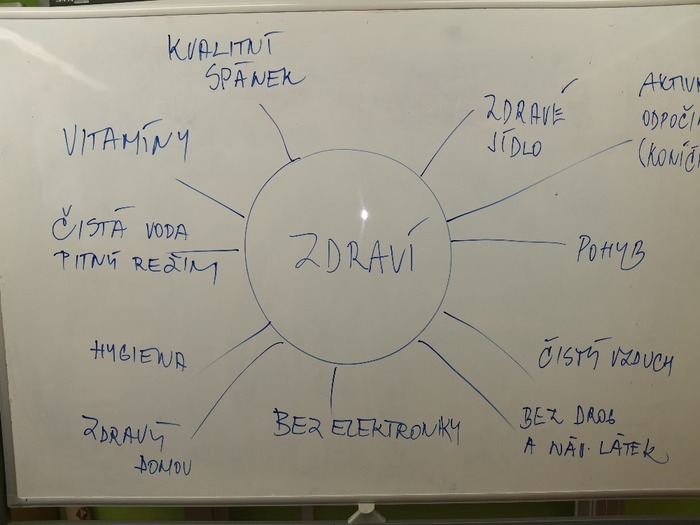 KVALITNÍ
SPÁNEK
ZDRAVÉ
JÍDLO
AKTIV
ODPOČI
(KONÍČ
VITAMÍNY
ČISTÁ VODA
PITNÝ REŽIM
ZDRAVÍ
POHYB
HYGIENA
ČISTÝ VZDUCH
ZDRAVÝ
DOMOV
BEZ ELEKTRONIKY
BEZ DROG
A NÁV. LÁTEK